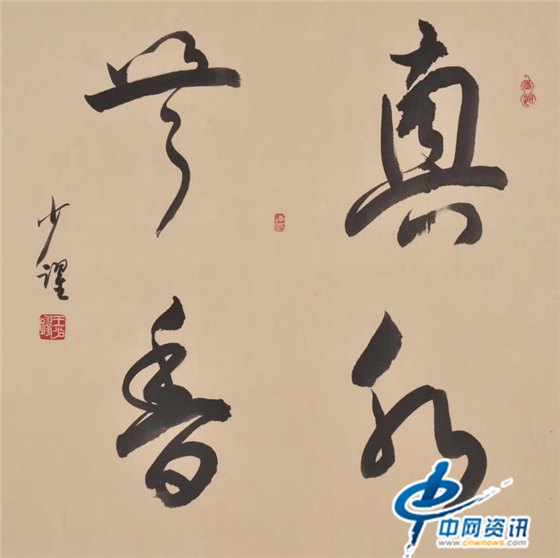 真水
無香
少躍
中网资讯
www.cnwnews.com